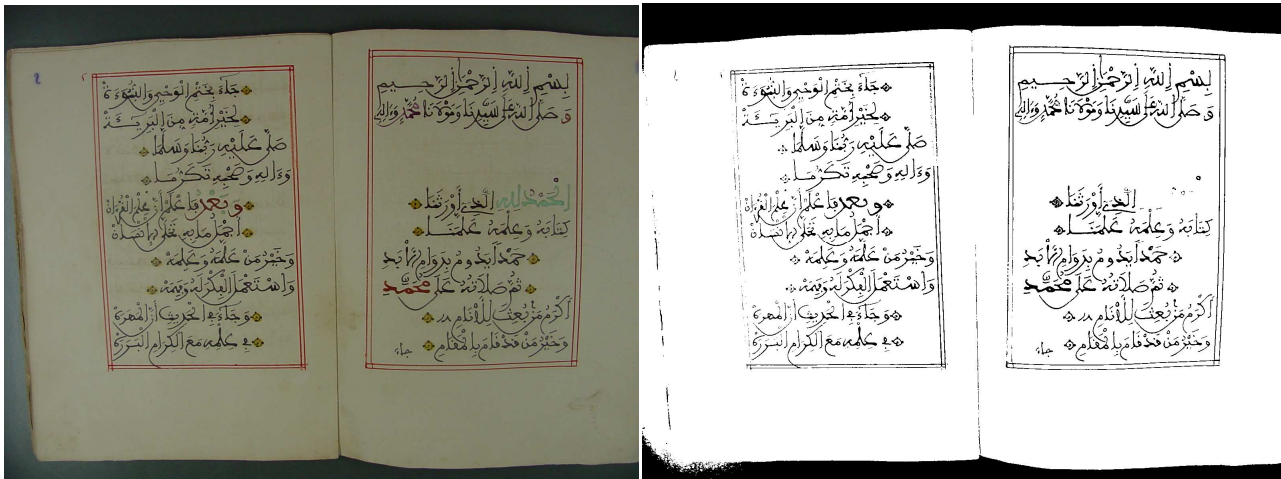 بسم الله الرحمن الرحيم
وصلى الله على سيدنا ومولانا محمد وءاله
الحمد لله الذي أورثنا
كتابه وعلمه علمنا
حمدا يدوم بدوام الأبد
ثم صلاته على محمد
أكرم من بعث للأنام
وخير من قد قام بالمقام
جاء
جاء بختم الوحي والنبوءة
لخير أمة من البريئة
صلى عليه ربنا وسلما
وءاله وصحبه تكرما
وبعد فاعلم أن علم القرءان
أجمل ما به تحلى الإنسان
وخير من علمه وعلمه
واستعمل الفكر له وفهمه
وجاء في الحديث أن المهرة
في علمه مع الكرام البررة
بسم الله الرحمن الرحيم
وصلى الله على سيدنا ومولانا محمد وءاله
الذي أورثنا
كتابه وعلمه علمنا
حمدا يدوم بدوام الأبد
ثم صلاته على محمد
أكرم من بعث للأنام
وخير من قد قام بالمقام
جاء
جاء بختم الوحي والنبوءة
لخير أمة من البريئة
صلى عليه ربنا وسلما
وءاله وصحبه تكرما
وبعد فاعلم أن علم القرءان
أجمل ما به تحلى الإنسان
وخير من علمه وعلمه
واستعمل الفكر له وفهمه
وجاء في الحديث أن المهرة
في علمه مع الكرام البررة